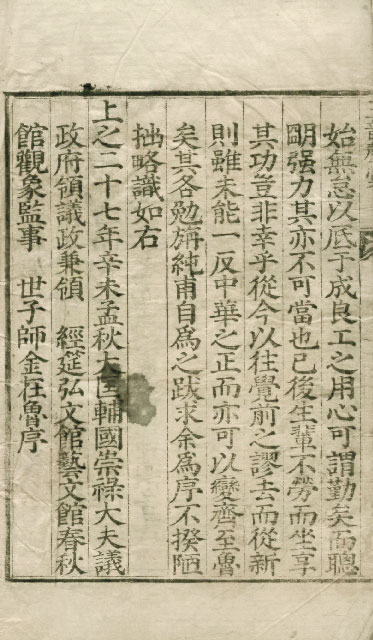 始無怠以底于成良工之用心可謂勤矣而聰
明强力其亦不可當也已後生輩不勞而坐享
其功豈非幸乎從今以往覺前之謬去而從新
則雖未能一反中華之正而亦可以變齊至魯
矣其各勉旃純甫自爲之跋求余爲序不揆陋
拙略識如右
上之二十七年辛未孟秋大匡輔國崇祿大夫議
政府領議政兼領 經筵弘文館藝文館春秋
館觀象監事 世子師金在魯序